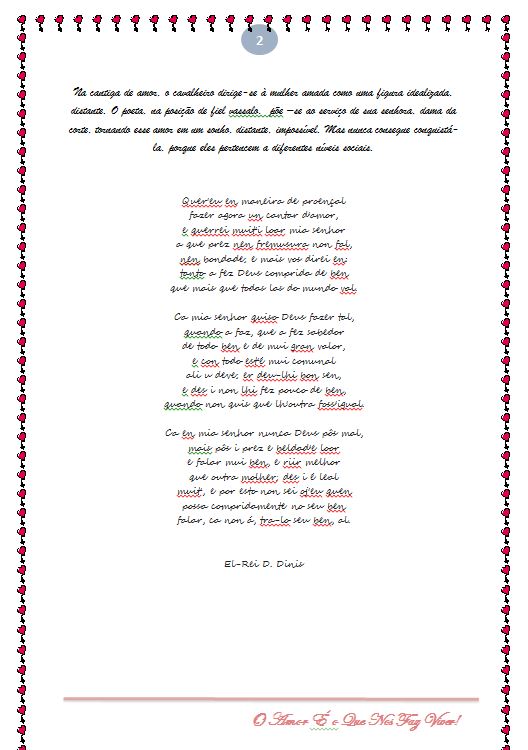 2
Na cantiga de amor, o cavalheiro dirige-se à mulher amada como uma figura idealizada,
distante. O poeta, na posição de fiel vassalo, põe –se ao serviço de sua senhora, dama da
corte, tornando esse amor em um sonho, distante, impossível. Mas nunca consegue conquistá-
la, porque eles pertencem a diferentes níveis sociais.
Quer'eu en maneira de proençal
fazer agora un cantar d'amor,
e querrei muit'i loar mia senhor
a que prez nen fremusura non fal,
nen bondade; e mais vos direi en:
tanto a fez Deus comprida de ben
que mais que todas las do mundo val.
Ca mia senhor quiso Deus fazer tal,
quando a faz, que a fez sabedor
de todo ben e de mui gran valor,
e con todo est'é mui comunal
ali u deve; er deu-lhi bon sen,
e des i non lhi fez pouco de ben,
quando non quis que lh'outra foss'igual.
Ca en mia senhor nunca Deus pôs mal,
mais pôs i prez e beldad'e loor
e falar mui ben, e riir melhor
que outra molher; des i é leal
muit', e por esto non sei oj'eu quen
possa compridamente no seu ben
falar, ca non á, tra-lo seu ben, al.
El-Rei D. Dinis
O Amor É o Que Nos Faz Viver!